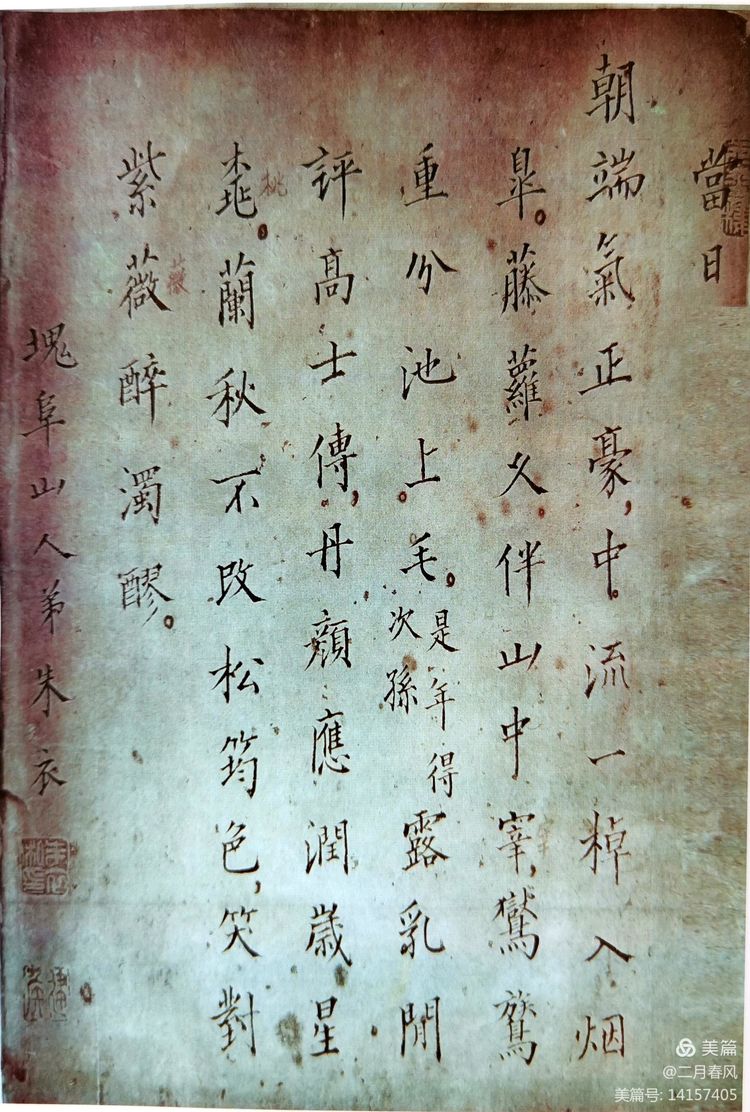 當日
朝端氣正豪，中流一棹入烟
皐。藤蘿久伴山中宰，鸑鷟
重分池上毛。是年得次孫露乳閒
評高士傳，丹顏應潤歲星
桃。蘭秋不改松筠色，笑對
桃
紫薇醉濁醪。
薇
塊阜山人弟朱衣
美篇
@二月春风
美篇号: 14157405